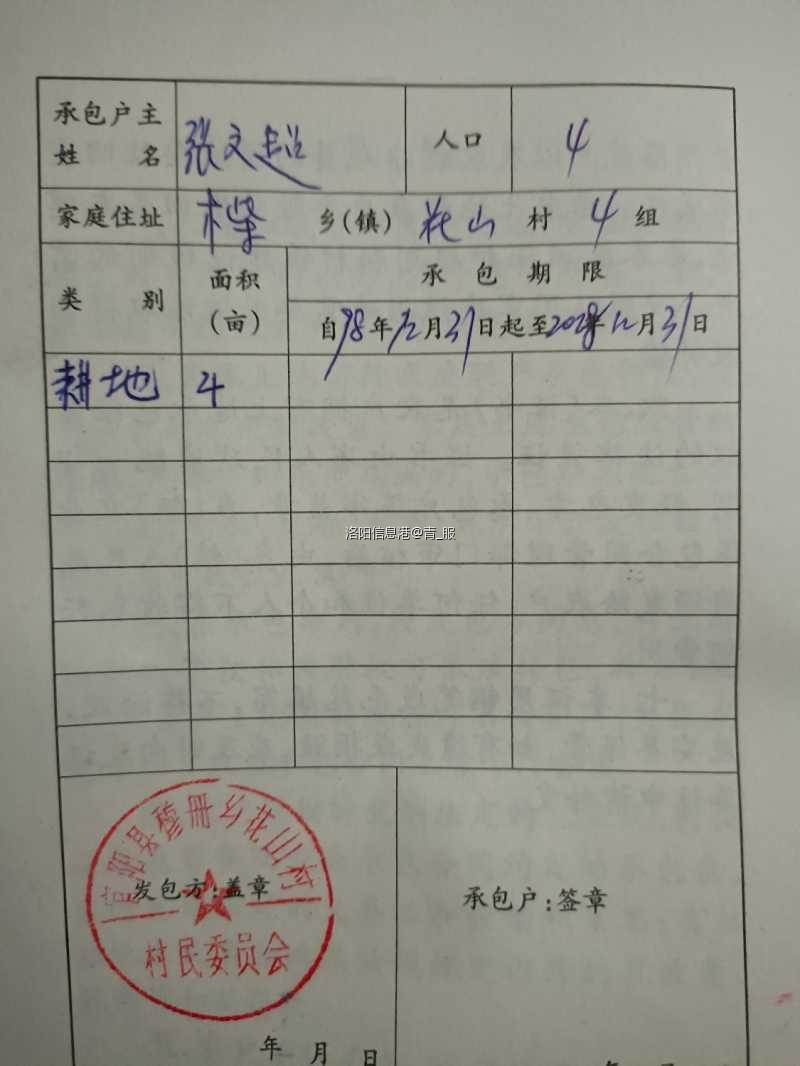 承包户主
姓 名
张文超
人口
4
家庭住址 木柴 乡(镇) 花山 村 4 组
类 别
面积
(亩)
承 包 期 限
自98年12月31日起至2028年12月31日
耕地 4
洛阳信息港@青_服
宜阳县 册乡花山村
村民委员会
发包方:盖章
承包户:签章
年 月 日